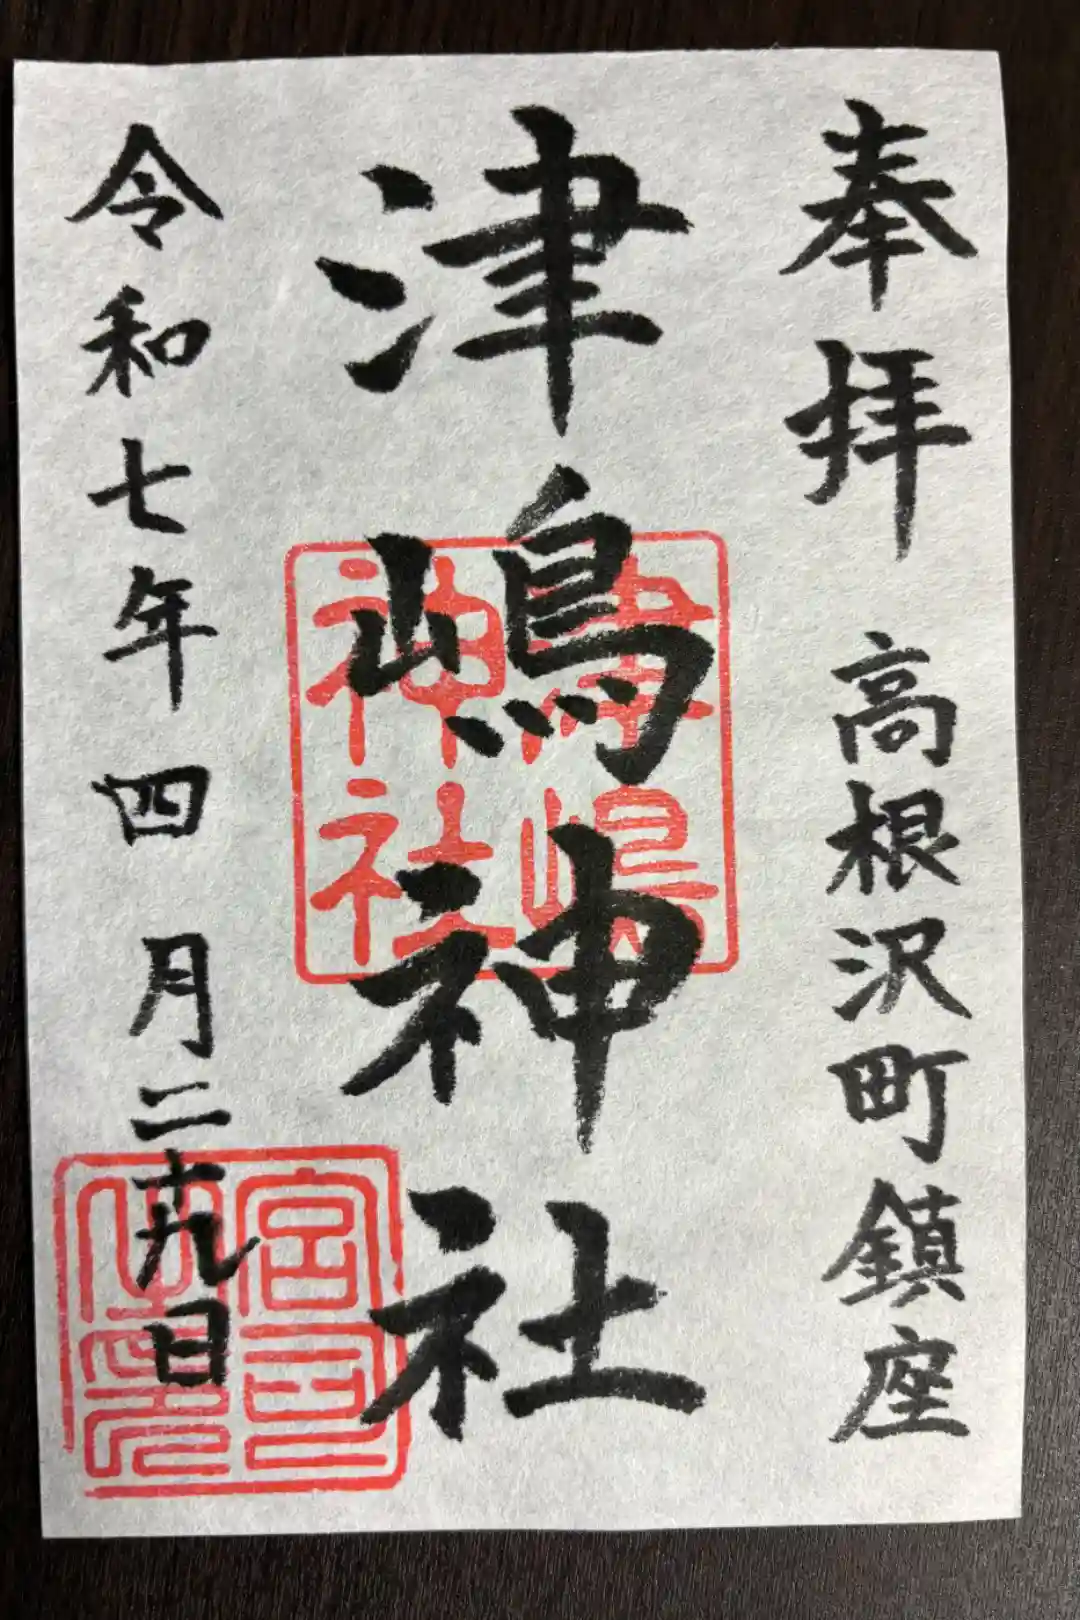 奉拝 高根沢町鎮座
津嶋神社
令和七年四月二十九日
津嶋
神社
宮司
之印